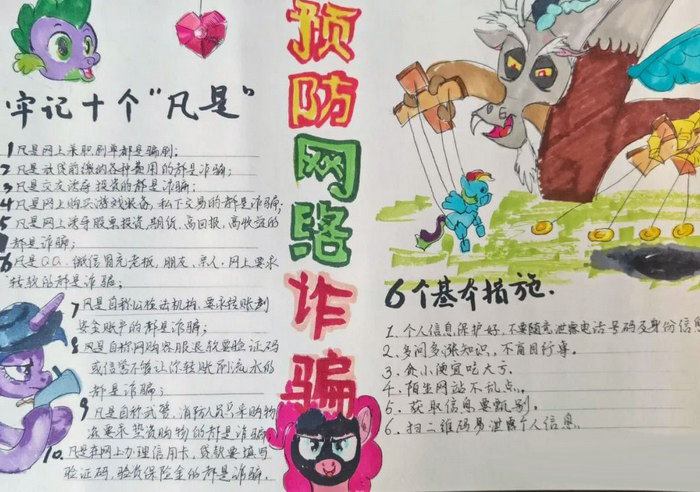 预防网络诈骗
牢记十个“凡是”
1 凡是网上兼职刷单都是骗局;
2 凡是贷款前缴纳各种费用的都是诈骗;
3 凡是交友诱导投资的都是诈骗;
4 凡是网上购买游戏装备、私下交易的都是诈骗;
5 凡是网上诱导股票投资、期货、高回报、高收益的
都是诈骗;
6 凡是QQ、微信冒充老板、朋友、亲人、网上要求
转钱的都是诈骗;
7 凡是自称公检法机构、要求转账到
安全账户的都是诈骗;
8 凡是自称网购客服退款要验证码
或信誉不够让你转账刷流水的
都是诈骗;
9 凡是自称武警、消防人员采购物
资要求垫资购物的都是诈骗;
10 凡是在网上办理信用卡、贷款要填写
验证码、验资保险金的都是诈骗。
6个基本措施.
1、个人信息保护好,不要随意泄露电话号码及身份信息
2、多问多涨知识、不盲目行事。
3、贪小便宜吃大亏
4、陌生网站不乱点。
5、获取信息要甄别。
6、扫二维码易泄露个人信息。